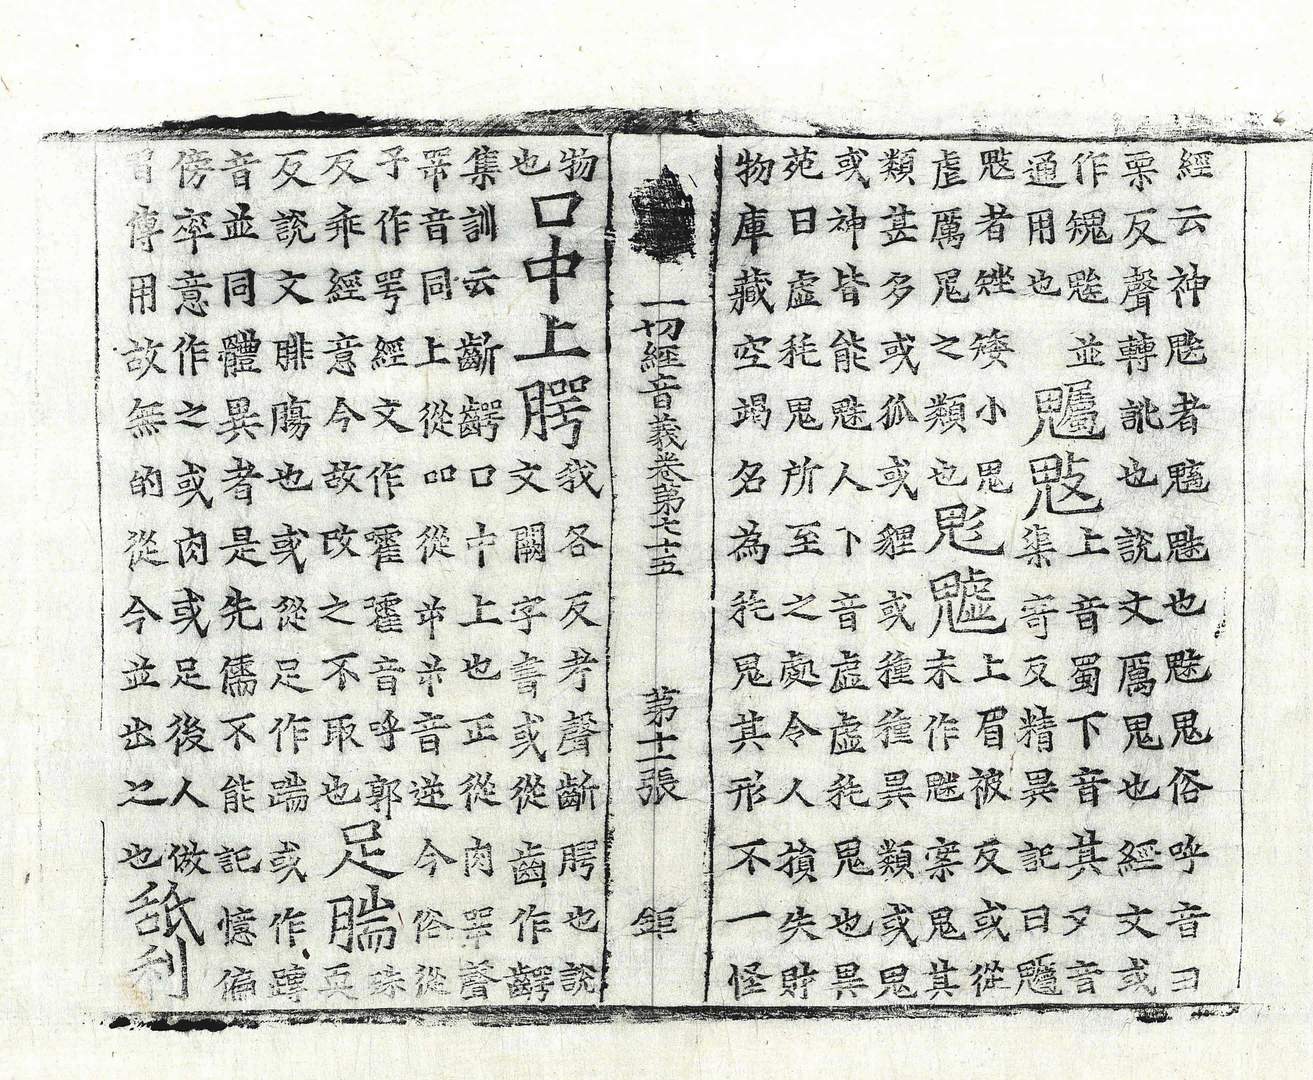 經云神魋者魑魅也魅鬼俗呼音ヨ
栗反聲轉訛也說文厲鬼也經文或
作䰨魋並
魑
魃
上音蜀下音其又音
通用也
渠寄反精異記曰魑
魃者矬矮小鬼
上眉被反或從
虛厲鬼之類也
鬽
魖
未作魅案鬼其
類甚多或狐或貍或種種異類或鬼
或神皆能魅人下音虛虛耗鬼也異
苑曰虛耗鬼所至之處令人損失財
物庫藏空竭名為耗鬼其形不一怪
一切經音義卷第七十五 第十一張 鉅
物
也
口中上腭
我各反考聲齗腭也說
文闕字書或從齒作齶
集訓云齗齶口中上也正從肉㖾聲
㖾音同上從吅從屰屰音逆今俗從
予作咢經文作霍㙶音呼郭
反乖經意今故改之不取也
足腨
殊
耎
反說文腓膓也或從足作踹或作蹲
音並同體異者是先儒不能記憶偏
傍率意作之或肉或足後人倣
習傳用故無的從今並出之也
舐利